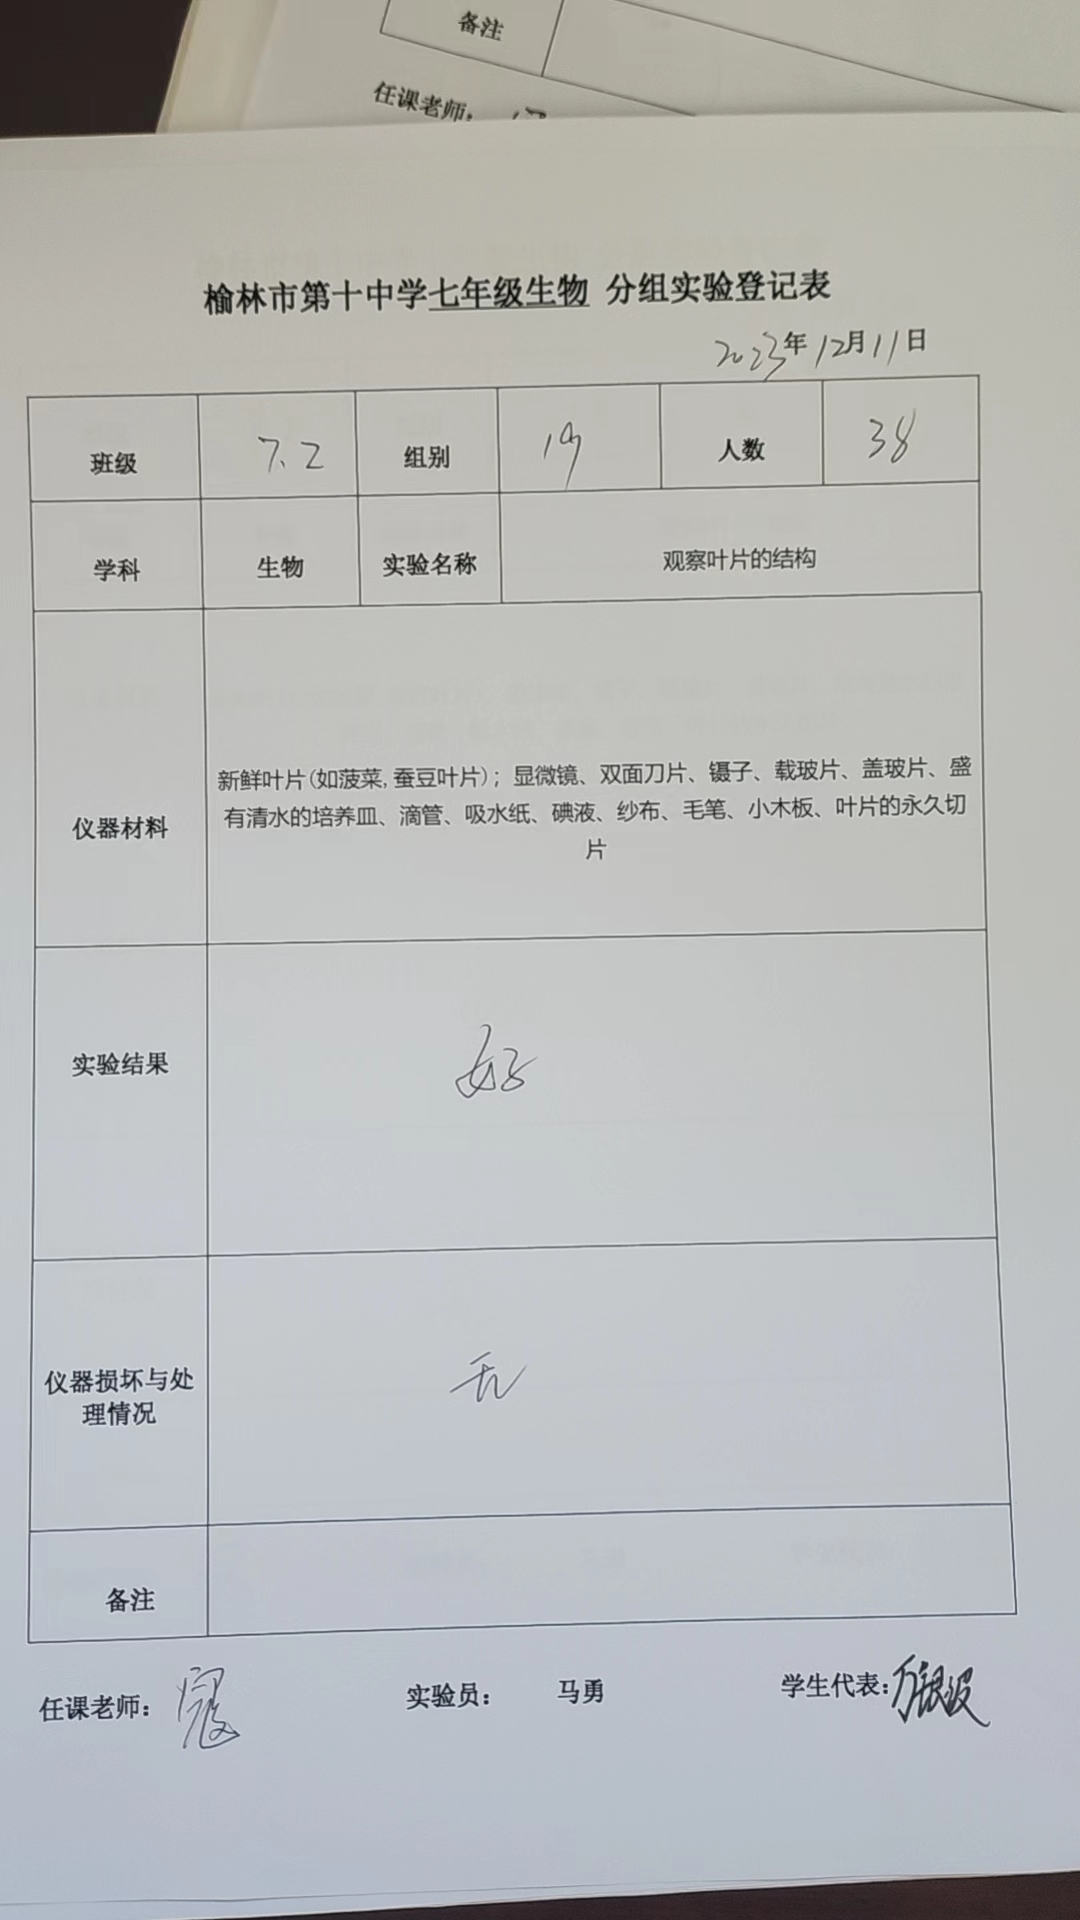 备注
任课老师：
榆林市第十中学七年级生物 分组实验登记表
2023年12月11日
班级 7.2 组别 19 人数 38
学科 生物 实验名称 观察叶片的结构
新鲜叶片(如菠菜,蚕豆叶片)；显微镜、双面刀片、镊子、载玻片、盖玻片、盛
仪器材料 有清水的培养皿、滴管、吸水纸、碘液、纱布、毛笔、小木板、叶片的永久切
片
实验结果 好
仪器损坏与处 无
理情况
备注
任课老师： 实验员： 马勇 学生代表：